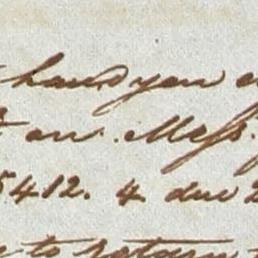 hand you
on Mess.
5412. 4 due 2
to return